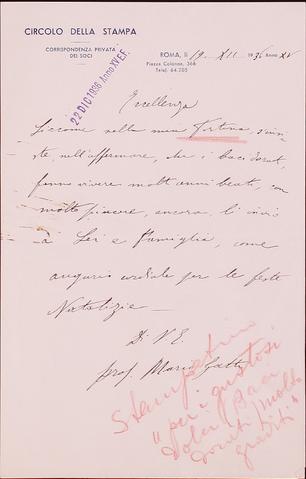 CIRCOLO DELLA STAMPA
CORRISPONDENZA PRIVATA
DEI SOCI
ROMA, li 19. XII 1936 Anno XV
Piazza Colonna, 366
Telef. 64.205
22 DIC 1936 Anno XV E.F.
Eccellenza
Siccome nella mia Fortuna,
ste nell'affermare, che i baci
fanno vivere molti anni beati, con
molto piacere, ancora li invio
a Lei e Famiglia, come
augurio cordiale per le feste
Natalizie —
Di V. E.
prof. Mario Gatti
"per i gustosi
dolci Baci
molto
graditi"